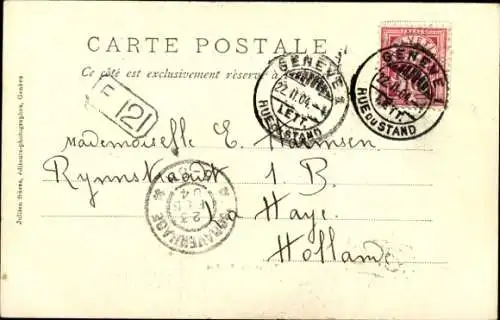 CARTE POSTALE
Ce côté est exclusivement réservé à
GENÈVE 1
22.II.04
LETT.
RUE DU STAND
GENÈVE
22.II.04
LETT.
RUE DU STAND
F 12
Mademoiselle E.
Rynnstraat 1. B.
La Haye.
Hollande
'S GRAVENHAGE
23 FEB 04
Jullien frères, éditeurs-photographes, Genève